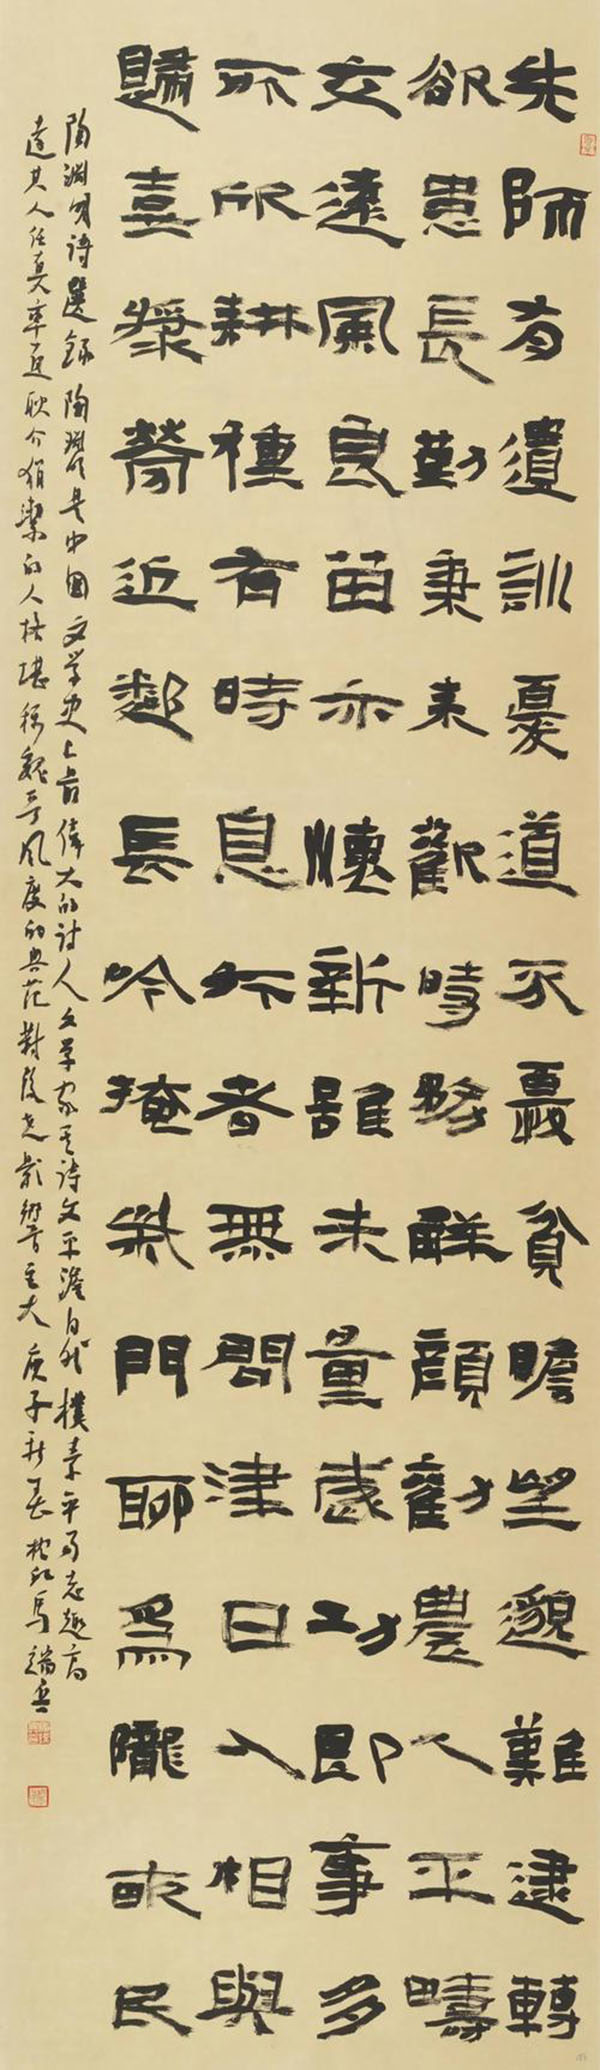 先師有遺訓憂道不憂貧瞻望邈難逮轉
欲患長勤秉耒歡時務解顏勸農人平疇
交遠風良苗亦懷新雖未量歲功即事多
所欣耕種有時息行者無問津日入相與
歸壺漿勞近鄰長吟掩柴門聊為隴畝民
陶淵明詩選錄陶淵明是中國文學史上最偉大的詩人文學家其詩文平澹自然樸素平易志趣高
遠其人任真率直耿介狷潔的人格堪稱魏晉風度的典范對後世影響至大庚子新春